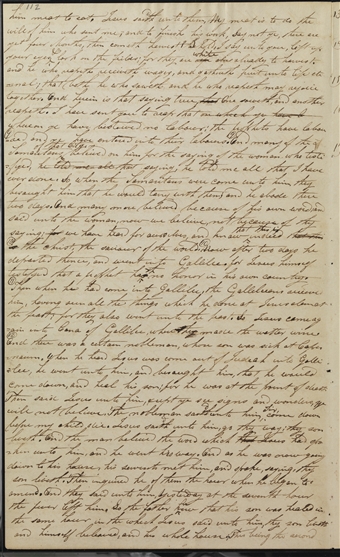 112
him meat to eat. Jesus saith unto them, My meat is to do the
will of him who sent me, and to finish his work. Say not ye, there are
yet four months, then cometh harvest? I say unto you, lift up
your eyes, look on the fields; for they are white already to harvest:
and he who reapeth receiveth wages, and gathereth fruit unto life ete
rnal; that both he who soweth and he who reapeth may rejoice
together. And herein is that saying true, one soweth, and another
reapeth. I have sent you to reap that on which
labour: have laboure
have entered into their labours. And many of the
Samaritans believed on him for the saying of the woman who testi
fied, saying, he told me all that I have
ever done. So when the Samaritans were come unto him, they
besought him that he would tarry with them; and he abode there
two days. And many more believed because of his own word, an
said unto the woman, now we believe, not because of
saying; we have heard for ourselves, and know that this is
the Christ, the saviour of the world. after two days he
departed thence, and went into Gallilee; for Jesus himself
testified that a prophet hath no honor in his own country.
Then when he had come into Gallilee, the Gallileans receive
him, having seen all the things which he done at Jerusalem at
the feast; for they also went unto the feast. So Jesus came ag
ain into Cana of Gallilee, where he made the water wine
And there was a certain nobleman, whose son was sick at Caper
naum. When he heard Jesus was come out of Judeah into Galli
lee, he went unto him, and besought him, that he would
come down, and heal his son; for he was at the point of death
Then said Jesus unto him, except ye see signs and wonders, ye
will not believe. The nobleman saith unto him, come down
before my child die. Jesus saith unto him, go thy way; thy son
liveth. And the man believed the word which Jesus had spo
ken unto him, and he went his way. And as he was now going
down to his house, his servants met him, and spake, saying, thy
son liveth. Then inquired he of them the hour when he began to
amend. And they said unto him, yesterday at the seventh hour
the fever left him. So the father knew that his son was healed in
the same hour, in the which Jesus said unto him, thy son liveth
and himself believed, and his whole house. This being the second